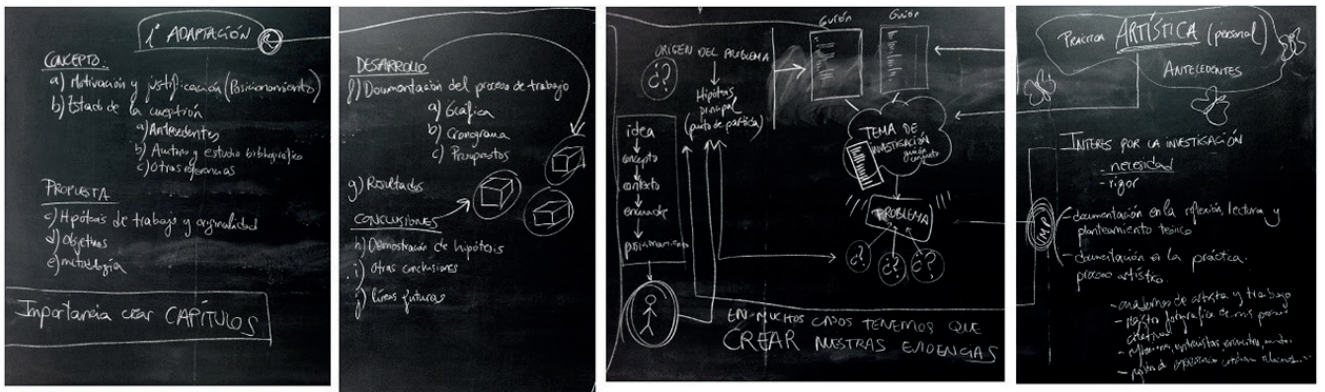 1ª ADAPTACIÓN
CONCEPTO.
a) Motivación y justificación (Posicionamiento)
b) Estado de la cuestión
a) Antecedentes
b) Autores y estudio bibliográfico
c) Otras referencias
PROPUESTA
c) Hipótesis de trabajo y originalidad
d) Objetivos
e) metodología
Importancia crear CAPÍTULOS
DESARROLLO
f) Documentación del proceso de trabajo
a) Gráfica
b) Cronograma
c) Presupuestos
g) Resultados
CONCLUSIONES
h) Demostración de hipótesis
i) Otras conclusiones
j) líneas futuras
Guión
Guión
ORIGEN DEL PROBLEMA
¿?
Hipótesis
principal
(punto de partida)
idea
concepto
contexto
encuadre
posicionamiento
TEMA DE
INVESTIGACIÓN
guión
conjunto
PROBLEMA
¿?
¿?
¿?
EN MUCHOS CASOS TENEMOS QUE
CREAR NUESTRAS EVIDENCIAS
PRÁCTICA ARTÍSTICA (personal)
ANTECEDENTES
INTERÉS POR LA INVESTIGACIÓN
- necesidad
- rigor
- documentación en la reflexión, lectura y
planteamiento teórico
- documentación en la práctica.
proceso artístico.
- cuadernos de artista y trabajo
- registro fotográfico de mis
- reflexiones,